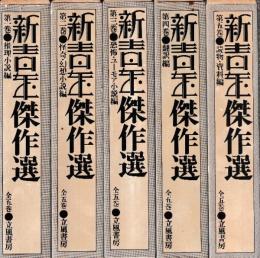 新青年傑作選
第一巻●推理小説編
全五巻●立風書房
新青年傑作選
第二巻●怪奇・幻想小説編
全五巻●立風書房
新青年傑作選
第三巻●恐怖・ユーモア小説編
全五巻●立風書房
新青年傑作選
第四巻●翻訳編
全五巻●立風書房
新青年傑作選
第五巻●読物・資料編
全五巻●立風書房